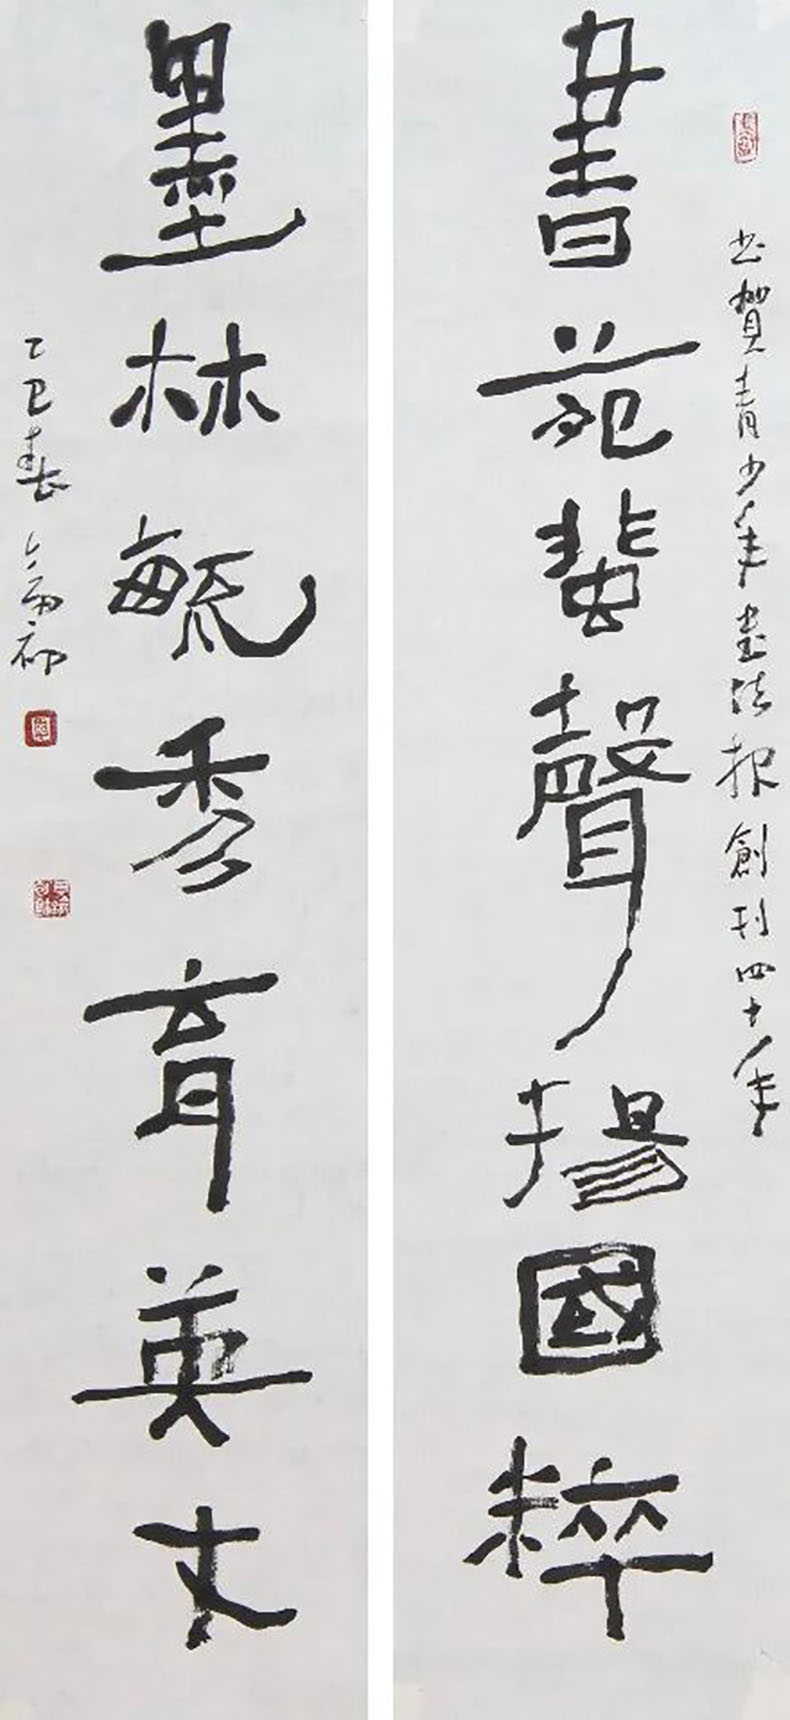 書賀青少年書法報創刊四十年
書苑蜚聲揚國粹
墨林毓秀育英才
乙巳春